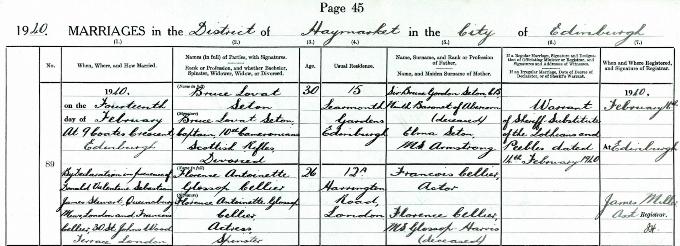 Page 45
1940. MARRIAGES in the District of Haymarket in the City of Edinburgh
(1.) (2.) (3.) (4.) (5.) (6.) (7.)
No.
When, Where, and How Married.
Names (in full) of Parties, with Signatures.
Rank or Profession, and whether Bachelor, Spinster, Widower, Widow, or Divorced.
Age.
Usual Residence.
Name, Surname, and Rank or Profession of Father.
Name, and Maiden Surname of Mother.
If a Regular Marriage, Signature and Designation of Officiating Minister or Registrar, and Signatures and Addresses of Witnesses.
If an Irregular Marriage, Date of Decree of Declarator, or of Sheriff's Warrant.
When and Where Registered, and Signature of Registrar.
89
1940.
on the Fourteenth
day of February
At 9 Coates Crescent
Edinburgh
By Declaration in presence of
Donald Valentine Sebastian
James Stewart, Queensbury
Mews, London and Francois
Cellier, 30 St. Johns Wood
Terrace London
(Name in full)
Bruce Lovat
Seton
(Signature)
Bruce Lovat Seton,
Captain, 10th Cameronians
Scottish Rifles,
Divorced
(Name in full)
Florence Antoinette
Glossop Cellier
(Signature)
Florence Antoinette Glossop
Cellier,
Actress
Spinster
30
26
15
Learmonth
Gardens
Edinburgh
Harrington
Road,
London
Sir Bruce Gordon Seton, C.B
Ninth Baronet of Abercorn
(deceased)
Elma Seton,
M.S. Armstrong
Francois Cellier,
Actor
Florence Cellier,
M.S. Glossop Harris
(deceased)
Warrant
of Sheriff Substitute
of the Lothians and
Peebles dated
14th February 1940
1940.
February
At Edinburgh
James
Asst. Registrar.